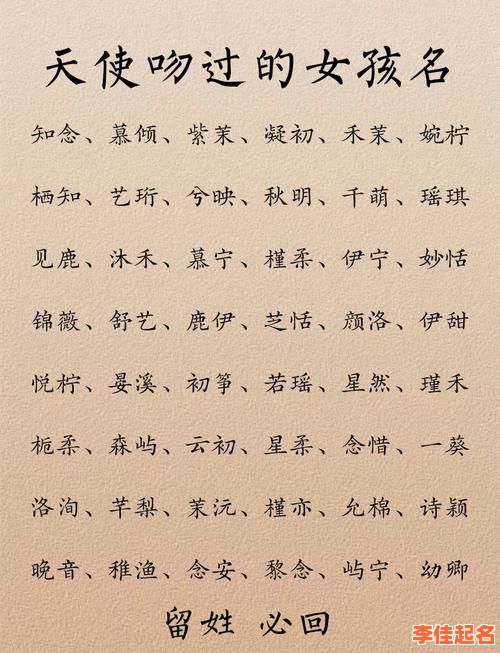 天使吻过的女孩名
知念、慕倾、紫茉、凝初、禾茉、婉柠
栖知、艺珩、兮映、秋明、千萌、瑶琪
见鹿、沐禾、慕宁、槿柔、伊宁、妙恬
锦薇、舒艺、鹿伊、芝恬、颜洛、伊甜
悦柠、晏溪、初筝、若瑶、星然、瑾禾
栀柔、森屿、云初、星柔、念惜、一葵
洛洵、芊梨、茉沅、槿亦、允棉、诗颖
晚音、稚渔、念安、黎念、屿宁、幼卿
留姓 必回
李佳起名